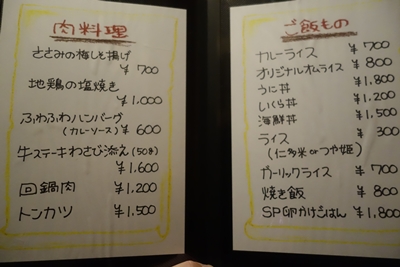 肉料理
ささみの梅しそ揚げ
¥700
地鶏の塩焼き
¥1.000
ふわふわハンバーグ
(カレーソース) ¥600
牛ステーキわさび添え(50g)
¥1.600
回鍋肉 ¥1.200
トンカツ ¥1.500
ご飯もの
カレーライス ¥700
オリジナルオムライス ¥800
うに丼 ¥1.800
いくら丼 ¥1.200
海鮮丼 ¥1.500
ライス ¥300
(仁多米orつや姫)
ガーリックライス ¥700
焼き飯 ¥800
SP卵かけごはん ¥1.800